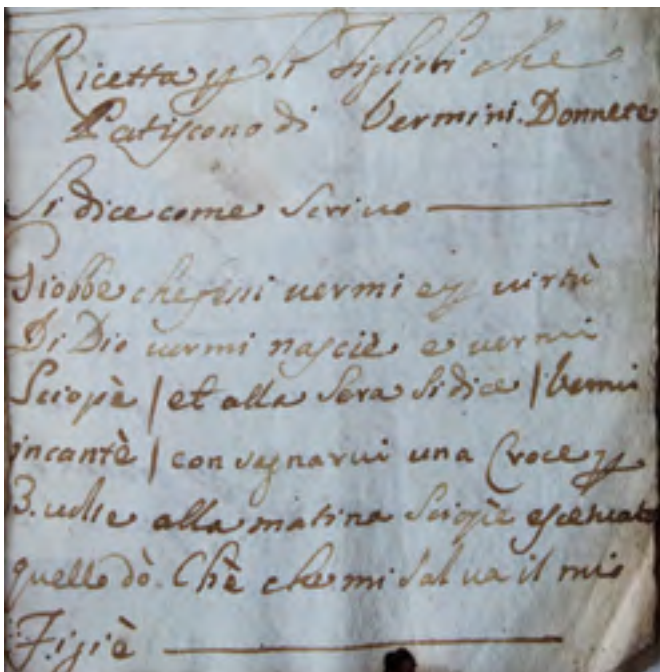 Ricetta p li figlioli che
Patiscono di Vermini. Donnete
Si dice come Scrivo
Giobbe che vermi e p virtù
Di Dio vermi nasciè e vermi
Sciopè / et alla Sera Si dice / Vermi
incantè / con segnarvi una Croce p
3. volte alla matina Sciopè
quello dò. Chè che mi Salva il mio
Figiè